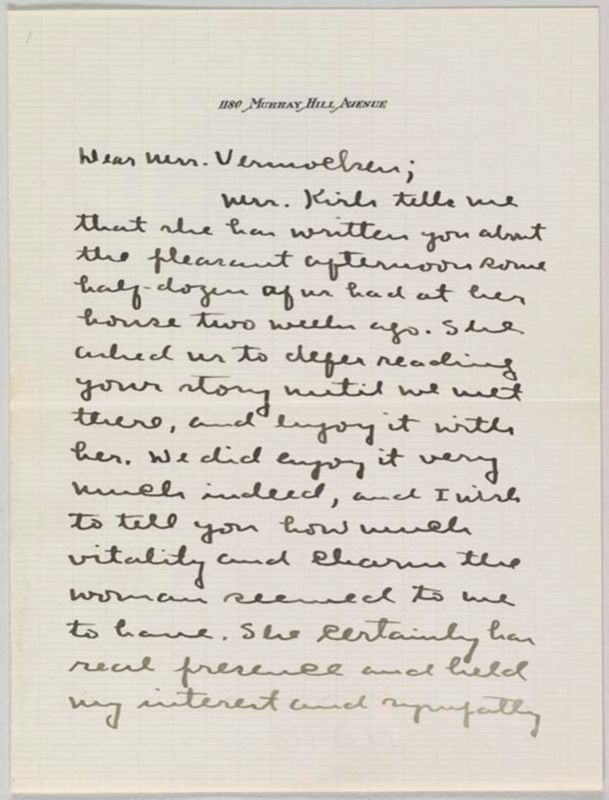 1180 Murray Hill Avenue
Dear Mrs. Vermorcken;
Mrs. Kirk tells me
that she has written you about
the pleasant afternoon some
half-dozen of us had at her
house two weeks ago. She
asked us to defer reading
your story until we met
there, and enjoy it with
her. We did enjoy it very
much indeed, and I wish
to tell you how much
vitality and charm the
woman seemed to me
to have. She certainly has
real presence and held
my interest and sympathy